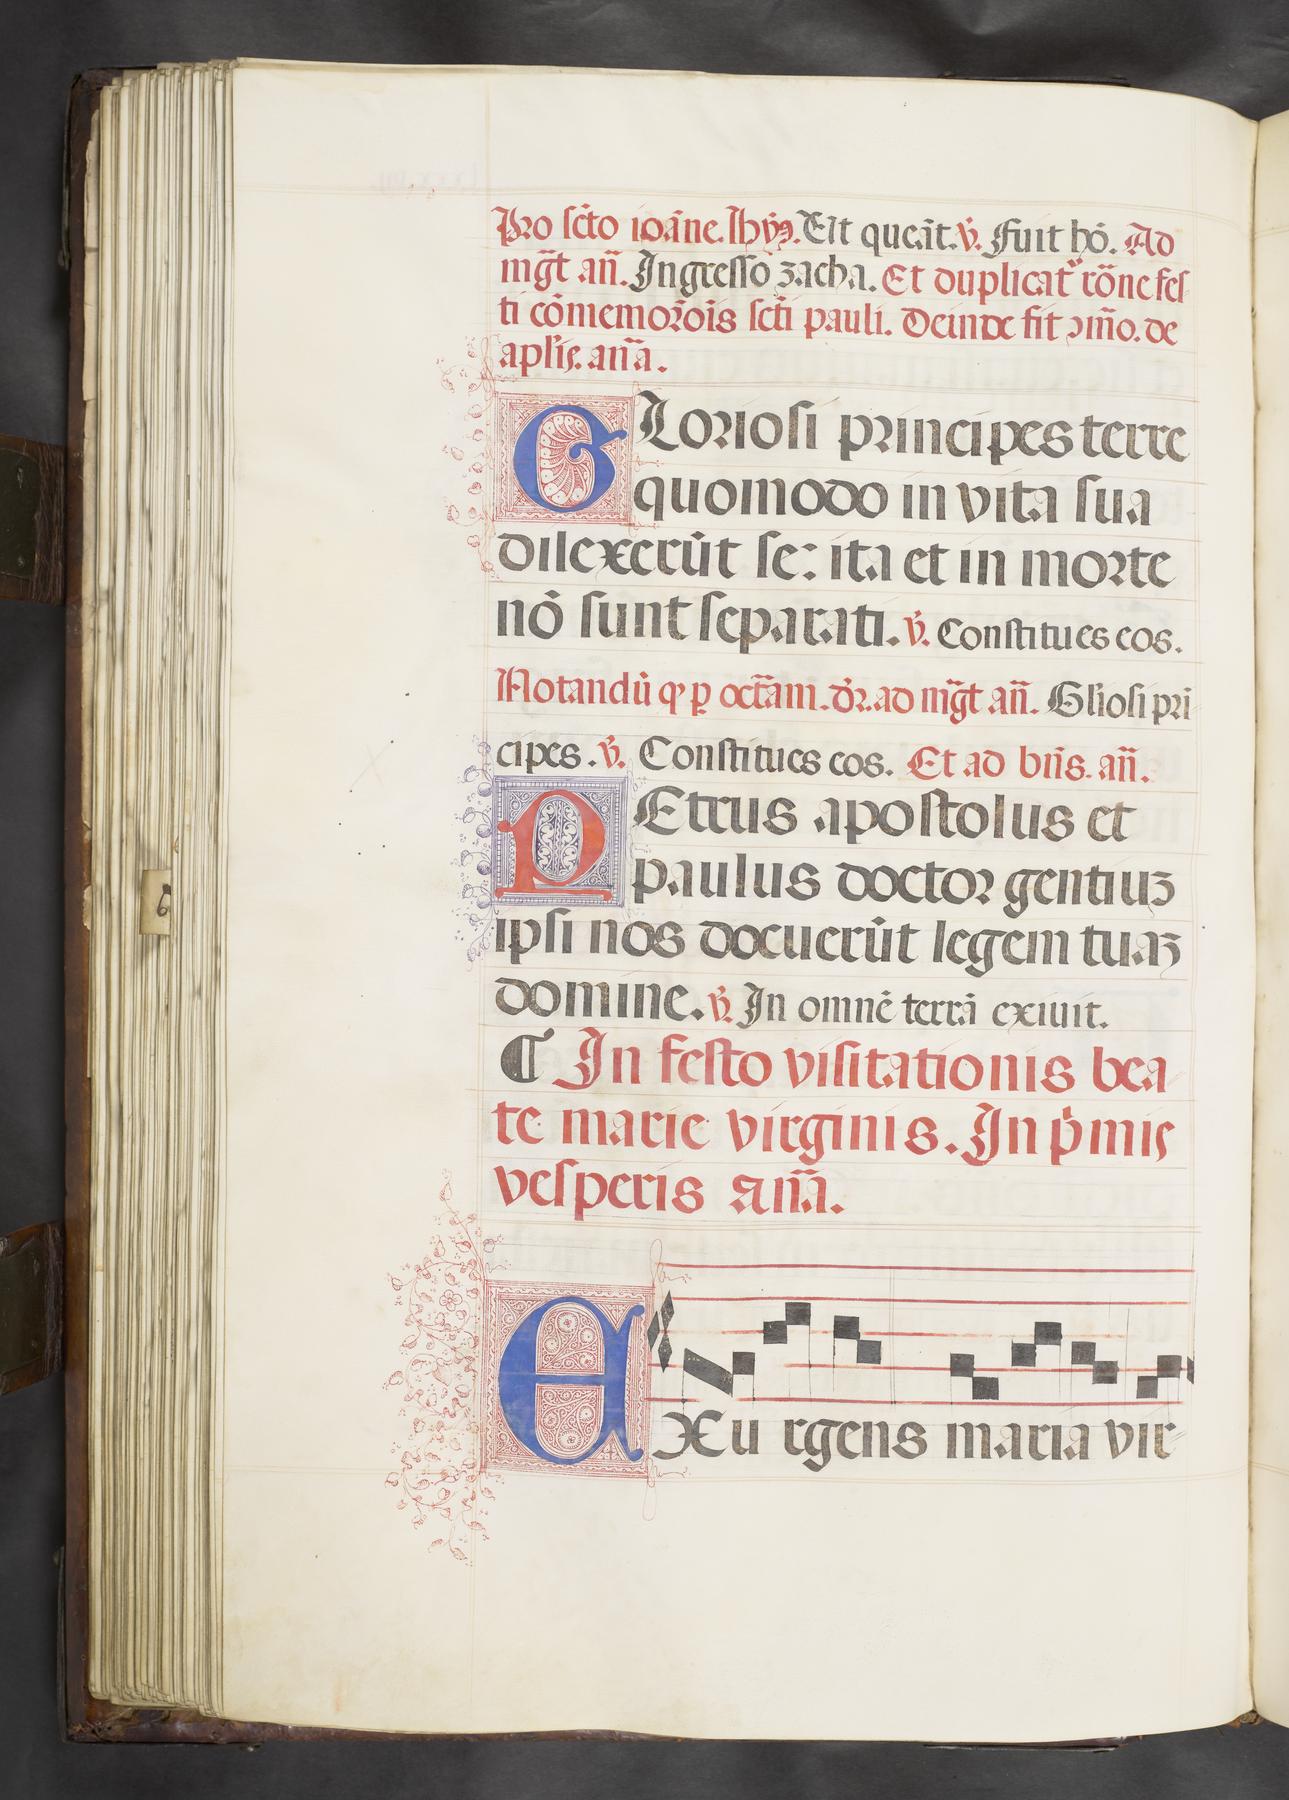 Pro scto ioāne. Ihỹ9. Elt queāt. v̄. Fuit hō. Ad
mḡt an̄. Ingresso zacha. Et duplicat᷑ rōne fes
ti cōmemorōis scti pauli. Deinde fit ↄmō. de
aplis. an̄a.
GLoriosi principes terre
quomodo in vita sua
dilexerūt se: ita et in morte
nō sunt separati. v̄. Constitues eos.
Notandū ꝙ ꝑ octāam. dr̄. ad mḡt an̄. Gl'iosi pri
cipes. v̄. Constitues eos. Et ad bn̄s. an̄.
PEtrus apostolus et
paulus doctor gentiuʒ
ipsi nos docuerūt legem tuaʒ
domine. v̄. In omnē terrā exiuit.
¶ In festo visitationis bea
te marie virginis. In pͥmis
vesperis an̄a.
EXu rgens maria vir
6